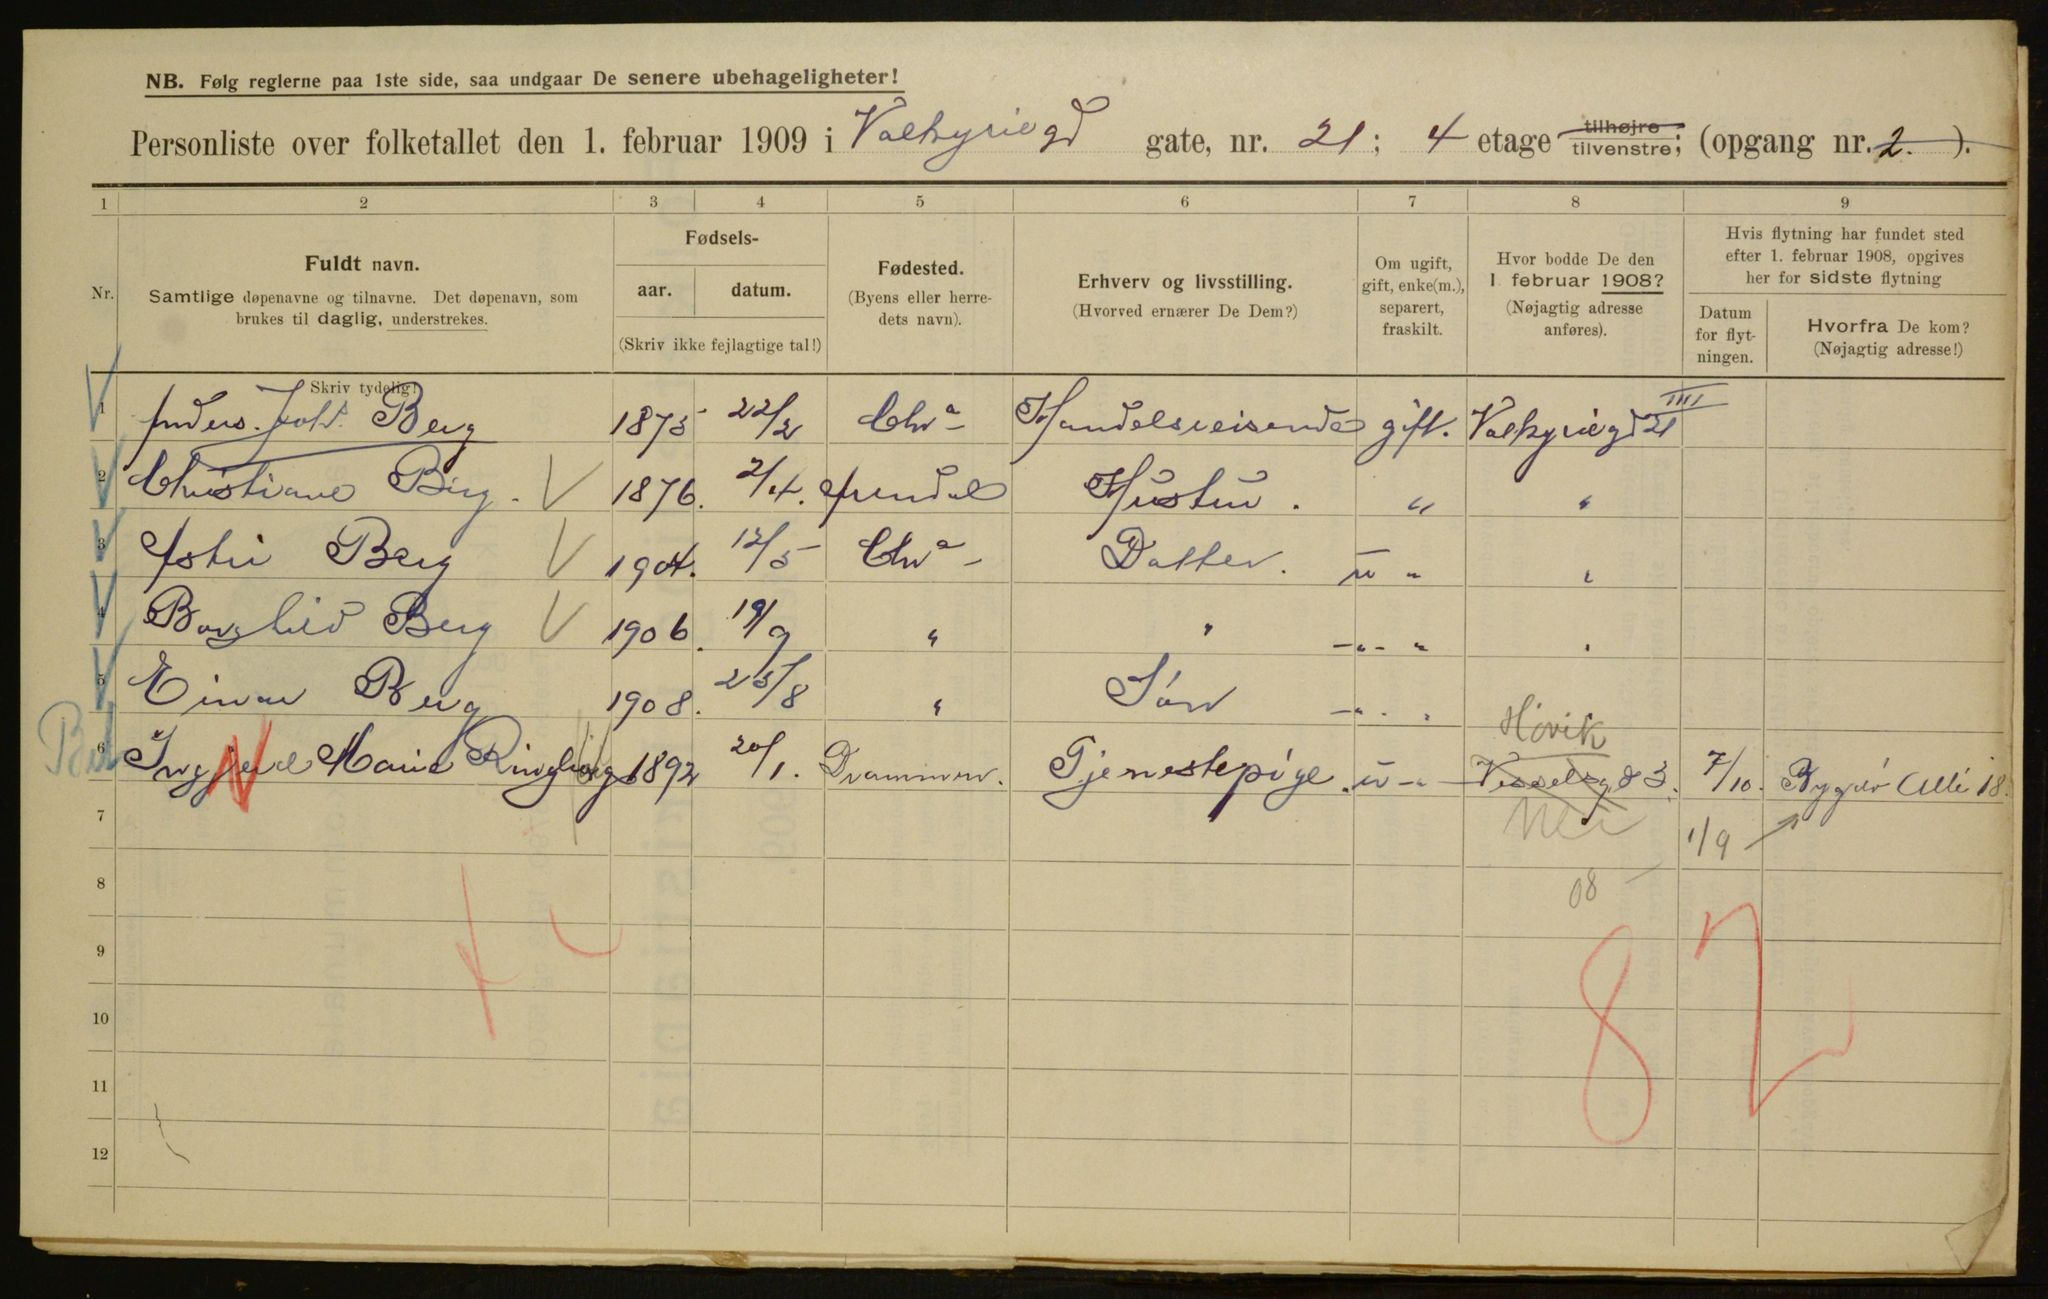 NB. Følg reglerne paa 1ste side, saa undgaar De senere ubehageligheter!
Personliste over folketallet den 1. februar 1909 i Valkyriegd gate, nr. 21; 4 etage tilhøjre tilvenstre; (opgang nr. 2.).
1 2 3 4 5 6 7 8 9
Nr.
Fuldt navn.
Samtlige døpenavne og tilnavne. Det døpenavn, som
brukes til daglig, understrekes.
Skriv tydelig!
Fødsels-
aar. datum.
(Skriv ikke fejlagtige tal!)
Fødested.
(Byens eller herre-
dets navn).
Erhverv og livsstilling.
(Hvorved ernærer De Dem?)
Om ugift,
gift, enke(m.),
separert,
fraskilt.
Hvor bodde De den
1 februar 1908?
(Nøjagtig adresse
anføres).
Hvis flytning har fundet sted
efter 1. februar 1908, opgives
her for sidste flytning
Datum
for flyt-
ningen.
Hvorfra De kom?
(Nøjagtig adresse!)
1 Anders. Joh. Berg 1875 22/2 Chr a Handelsreisende gift. Valkyriegd 21 IIII
2 Christiane Berg. 1876. 2/4. Arendal Hustru. " "
3 Astri Berg 1904. 12/5 Chr a Datter. u " "
4 Borghild Berg 1906. 19/9 " " -"- " "
5 Einar Berg 1908. 25/8 " Søn -". "
Høvik
6 Ingjerd Marie 1892 20/1. Drammen. Tjenestepige u - " Vesselsgd 3. 7/10. Bygdø Alle 18.
7 Nei 1/9
8 08 -
9
10 82
11
12